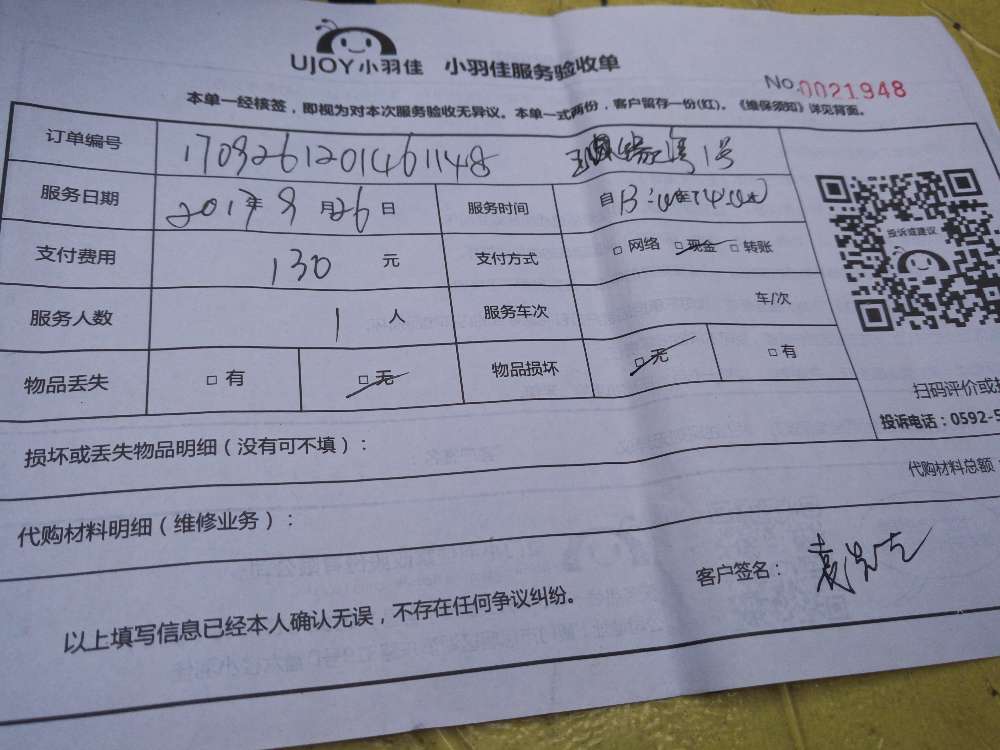 UJOY小羽佳 小羽佳服务验收单
No.0021948
本单一经核签，即视为对本次服务验收无异议。本单一式两份，客户留存一份(红)。《维保须知》详见背面。
订单编号 1709261201461148 1号
服务日期 2017年9月26日 服务时间 自13:00至14:00
支付费用 130元 支付方式 □网络 □现金 □转账
投诉或建议
服务人数 1人 服务车次 车/次
物品丢失 □有 □无 物品损坏 □无 □有
扫码评价或
投诉电话：0592-5
损坏或丢失物品明细（没有可不填）：
代购材料总额
代购材料明细（维修业务）：
客户签名：
以上填写信息已经本人确认无误，不存在任何争议纠纷。